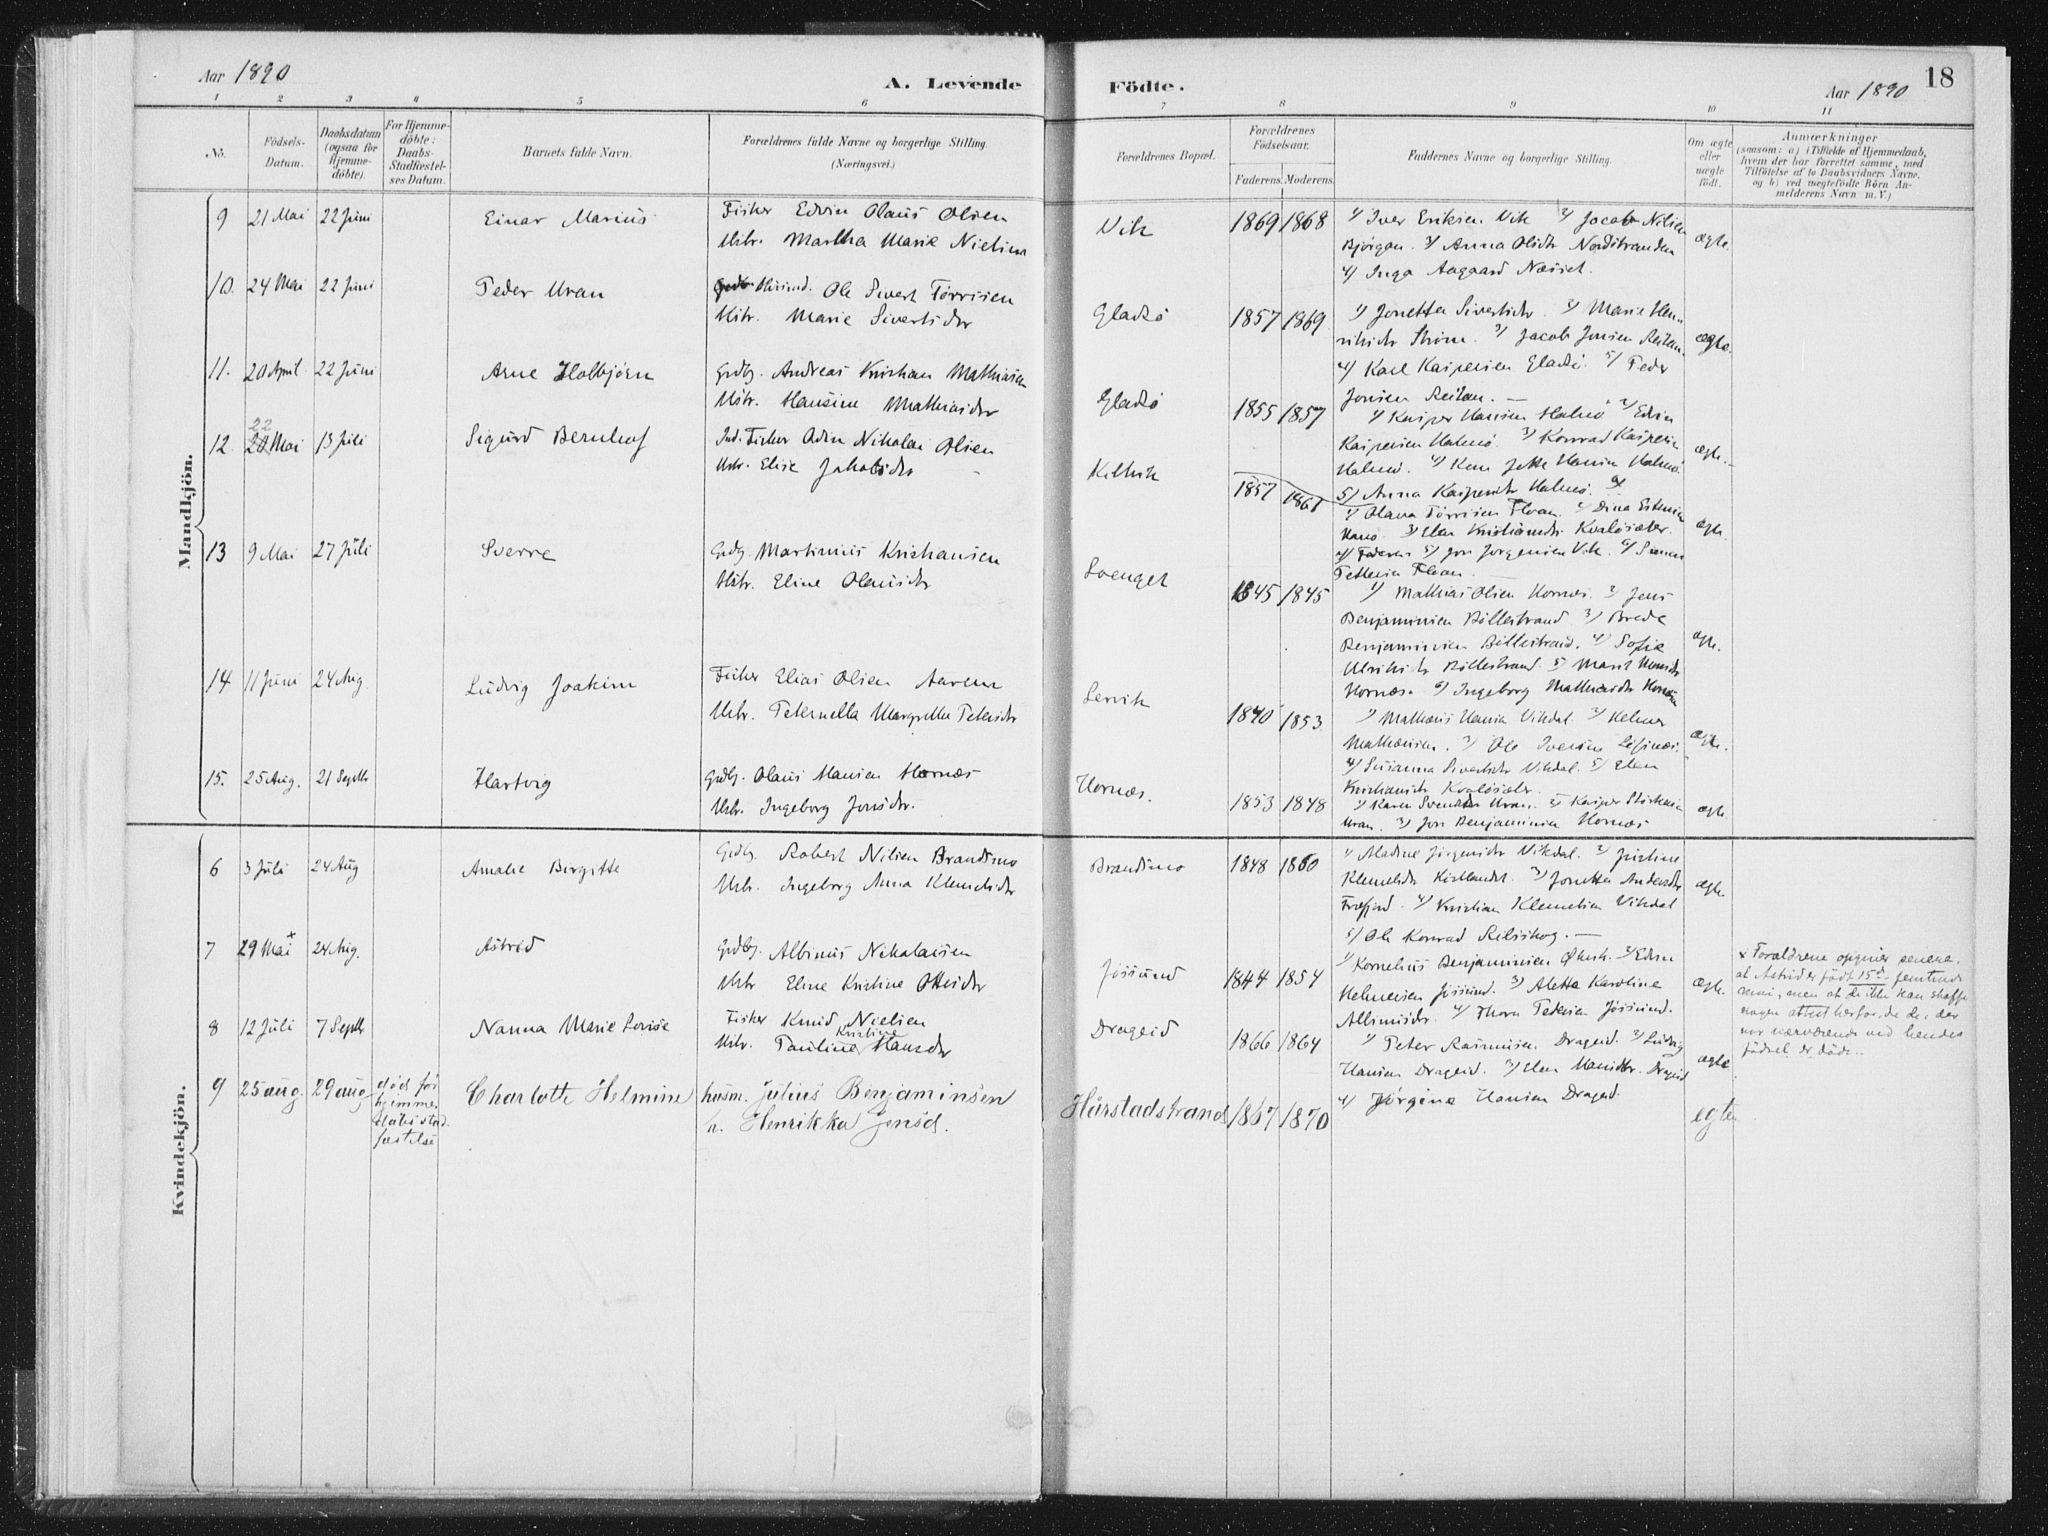 Aar 1890
A. Levende
Födte.
Aar 1890
18
1 2 3 4 5 6 7 8 9 10 11
No.
Födsels-
Datum.
Daabsdatum
(ogsaa for
Hjemme-
döbte).
For Hjemme-
döbte:
Daabs-
Stadfæstel-
ses Datum.
Barnets fulde Navn.
Forældrenes fulde Navne og borgerlige Stilling.
(Næringsvei.)
Forældrenes Bopæl.
Forældrenes
Födselsaar.
Faderens. Moderens.
Faddernes Navne og borgerlige Stilling.
Om ægte
eller
uægte
födt.
Anmærkninger
(saasom: a) i Tilfælde af Hjemmedaab,
hvem der har forrettet samme, med
Tilföielse af to Daabsvidners Navne,
og b) ved uægtefödte Börn An-
melderens Navn m. V.)
Mandkjön.
9 21 Mai 22 Juni Einar Marius Fisker Edvin Olaus Olsen
Hstr. Martha Marie Nielsine
Vik 1869 1868 1) Iver Eriksen Vik 2) Jacob Nilsen
Bjørgan. 3) Anna Olsdtr Nordstranden
4) Inga Aagaard Næsset.
ægte.
10. 24 Mai 22 Juni Peder Uran Ole Sivert Tørrisen
Hstr. Marie Sivertsdtr
Gladsö 1857 1869 1) Jonetta Sivertsdtr. 2) Marie Hen-
riksdtr Strøm. 3) Jacob Jonsen Reitan.
4) Karl Kaspersen Gladsö. 5) Peder
Jonsen Reitan. —
ægte.
11. 20 April 22 Juni Arne Holbjørn Grdbr. Andreas Kristian Mathiasen
Hstr. Hansine Mathiasdtr
Gladsö 1855 1857 1) Kasper Hansen Halmö 2) Edvin
Kaspersen Halmö. 3) Konrad Kaspersen
Halmö. 4) Hansen Halmö
5) Anna Kaspersdtr Halmö.
ægte.
22
12. 20 Mai 13 Juli Sigurd Bernhof Ind. Fisker Odin Nikolai Olsen
Hstr. Elise Jakobsdtr
1857 1861 1) Olava Tørrisen Floan. 2) Dina Estensen
3) Elen Kristiansdtr. Kvaløsæter.
4) Faderen 5) Jon Jørgensen Vik. 6) Simon
Pettersen Floan.
ægte.
13 9 Mai 27 Juli Sverre Grdbr. Martinius Kristiansen
Hstr. Eline Olausdtr
1845 1845 1) Mathias Olsen Hornæs. 2) Jens
Benjaminsen Böllestrand. 3) Brede
Benjaminsen Böllestrand. 4) Sofie
Ulriksdtr Böllestrand 5) Marit
Hornæs. 6) Ingeborg Mathiasdtr Hornæs
ægte.
14 11 Juni 24 Aug. Ludvig Joakim Fisker Elias Olsen
Hstr. Peternella Margrethe Petersdtr
Lervik 1840 1853 1) Mathæus Hansen Vikdal. 2) Helmer
Mathæusen. 3) Ole Iversen
4) Susanna Sivertsdtr Vikdal. 5) Elen
Kristiansdtr Kvaløsæter.
ægte.
15. 25 Aug. 21 Septbr Hartvig Grdbr. Olaus Hansen Hornæs
Hstr. Ingeborg Jonsdtr.
Hornæs. 1853 1848 1) Karen Svendsdtr Uran. 2) Kasper
Uran. 3) Jon Benjaminsen Hornæs
ægte.
Kvindekjön.
6 3 Juli 24 Aug Amalie Birgitte Grdbr. Robert Nilsen Brandsmo
Hstr. Ingeborg Anna Klemetsdtr
Brandsmo 1848 1860 1) Aladine Jørgensdtr Vikdal. 2) Justine
Klemetsdtr 3) Jonetta Andersdtr
4) Kristian Klemetsen Vikdal
5) Ole Konrad
ægte.
7 29 Mai x 24 Aug. Astrid Grdbr. Albinus Nikolaisen
Hstr Eline Kristine Ottesdtr
Jössund 1844 1854 1) Kornelius Benjaminsen 2) Edvin
Helmersen Jössund. 3) Aletta Karoline
Albinusdtr. 4) Thora Pedersen Jössund.
ægte.
x Forældrene opgiver senere,
at Astrid er født 15d femtende
mai, men at de ikke kan skaffe
nogen attest herfor, da de, der
var nærværende ved hendes
fødsel, er døde.
8 12 Juli 7 Septbr Nanna Marie Lovise Fisker Knud Nielsen
Kristine
Hstr. Pauline Hansdtr
Drageid 1866 1864 1) Peter Rasmusen Drageid. 2) Ludvig
Hansen Drageid. 3) Elen Hansdtr. Drageid
4) Jørgine Hansen Drageid.
ægte
9 25 aug. 29 aug død før
hjemme
dåbsstad
fæstelse
Charlotte Helmine husm. Julius Benjaminsen
h. Henrikka Jensd.
Hårstadstrand 1867 1870 egte